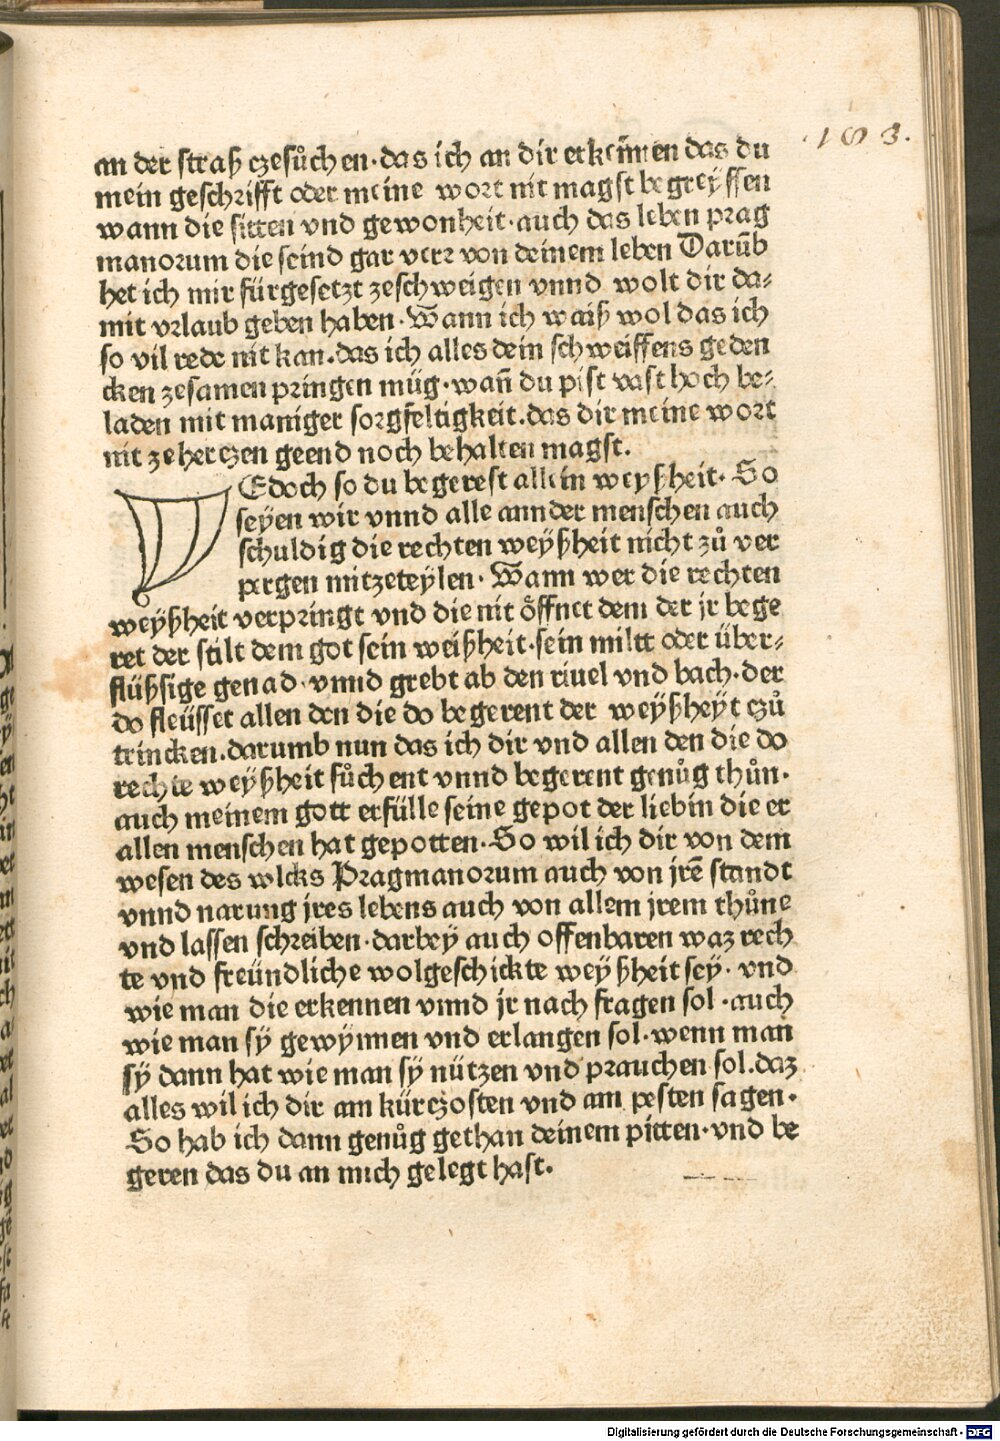 .193.
an der straß czesůchen·das ich an dir erkeñnen das du
mein geschrifft oder meine wort nit magst begreÿffen
wann die sitten vnd gewonheit·auch das leben prag
manorum die seind gar verr von deinem leben Darūb
het ich mir fürgesetzt zeschweigen vnnd wolt dir da⸗
mit vrlaub geben haben·Wann ich waiß wol das ich
so vil rede nit kan.das ich alles dein schweiffens geden
cken zesamen pringen müg·wan̄ du pist vast hoch be⸗
laden mit maniger sorgfeltigkeit.das dir meine wort
nit ze herczen geend noch behalten magst.
Edoch so du begerest allein weyßheit· So
seyen wir vnnd alle annder menschen auch
schuldig die rechten weÿßheit nicht zů ver
pergen mitzeteÿlen· Wann wer die rechten
weÿßheit verpringt vnd die nit öffnet dem der jr bege
ret der stilt dem got sein weißheit·sein milt oder über⸗
flüßsige genad·vnnd grebt ab den riuel vnd bach·der
do fleüsset allen den die do begerent der weÿßheÿt czů
trincken.darumb nun das ich dir vnd allen den die do
rechte weÿßheit sůchent vnnd begerent genůg thůn·
auch meinem gott erfülle seine gepot der liebin die er
allen menschen hat gepotten·So wil ich dir von dem
wesen des wlcks Pragmanorum auch von jrē standt
vnnd narung jres lebens auch von allem jrem thůne
vnd lassen schreiben·darbeÿ auch offenbaren waz rech
te vnd freündliche wolgeschickte weÿßheit sey· vnd
wie man die erkennen vnnd jr nach fragen sol·auch
wie man sÿ gewÿnnen vnd erlangen sol·wenn man
sÿ dann hat wie man sÿ nützen vnd prauchen sol.daz
alles wil ich dir am kürczosten vnd am pesten sagen·
So hab ich dann genůg gethan deinem pitten·vnd be
geren das du an mich gelegt hast.
Digitalisierung gefördert durch die Deutsche Forschungsgemeinschaft - DFG